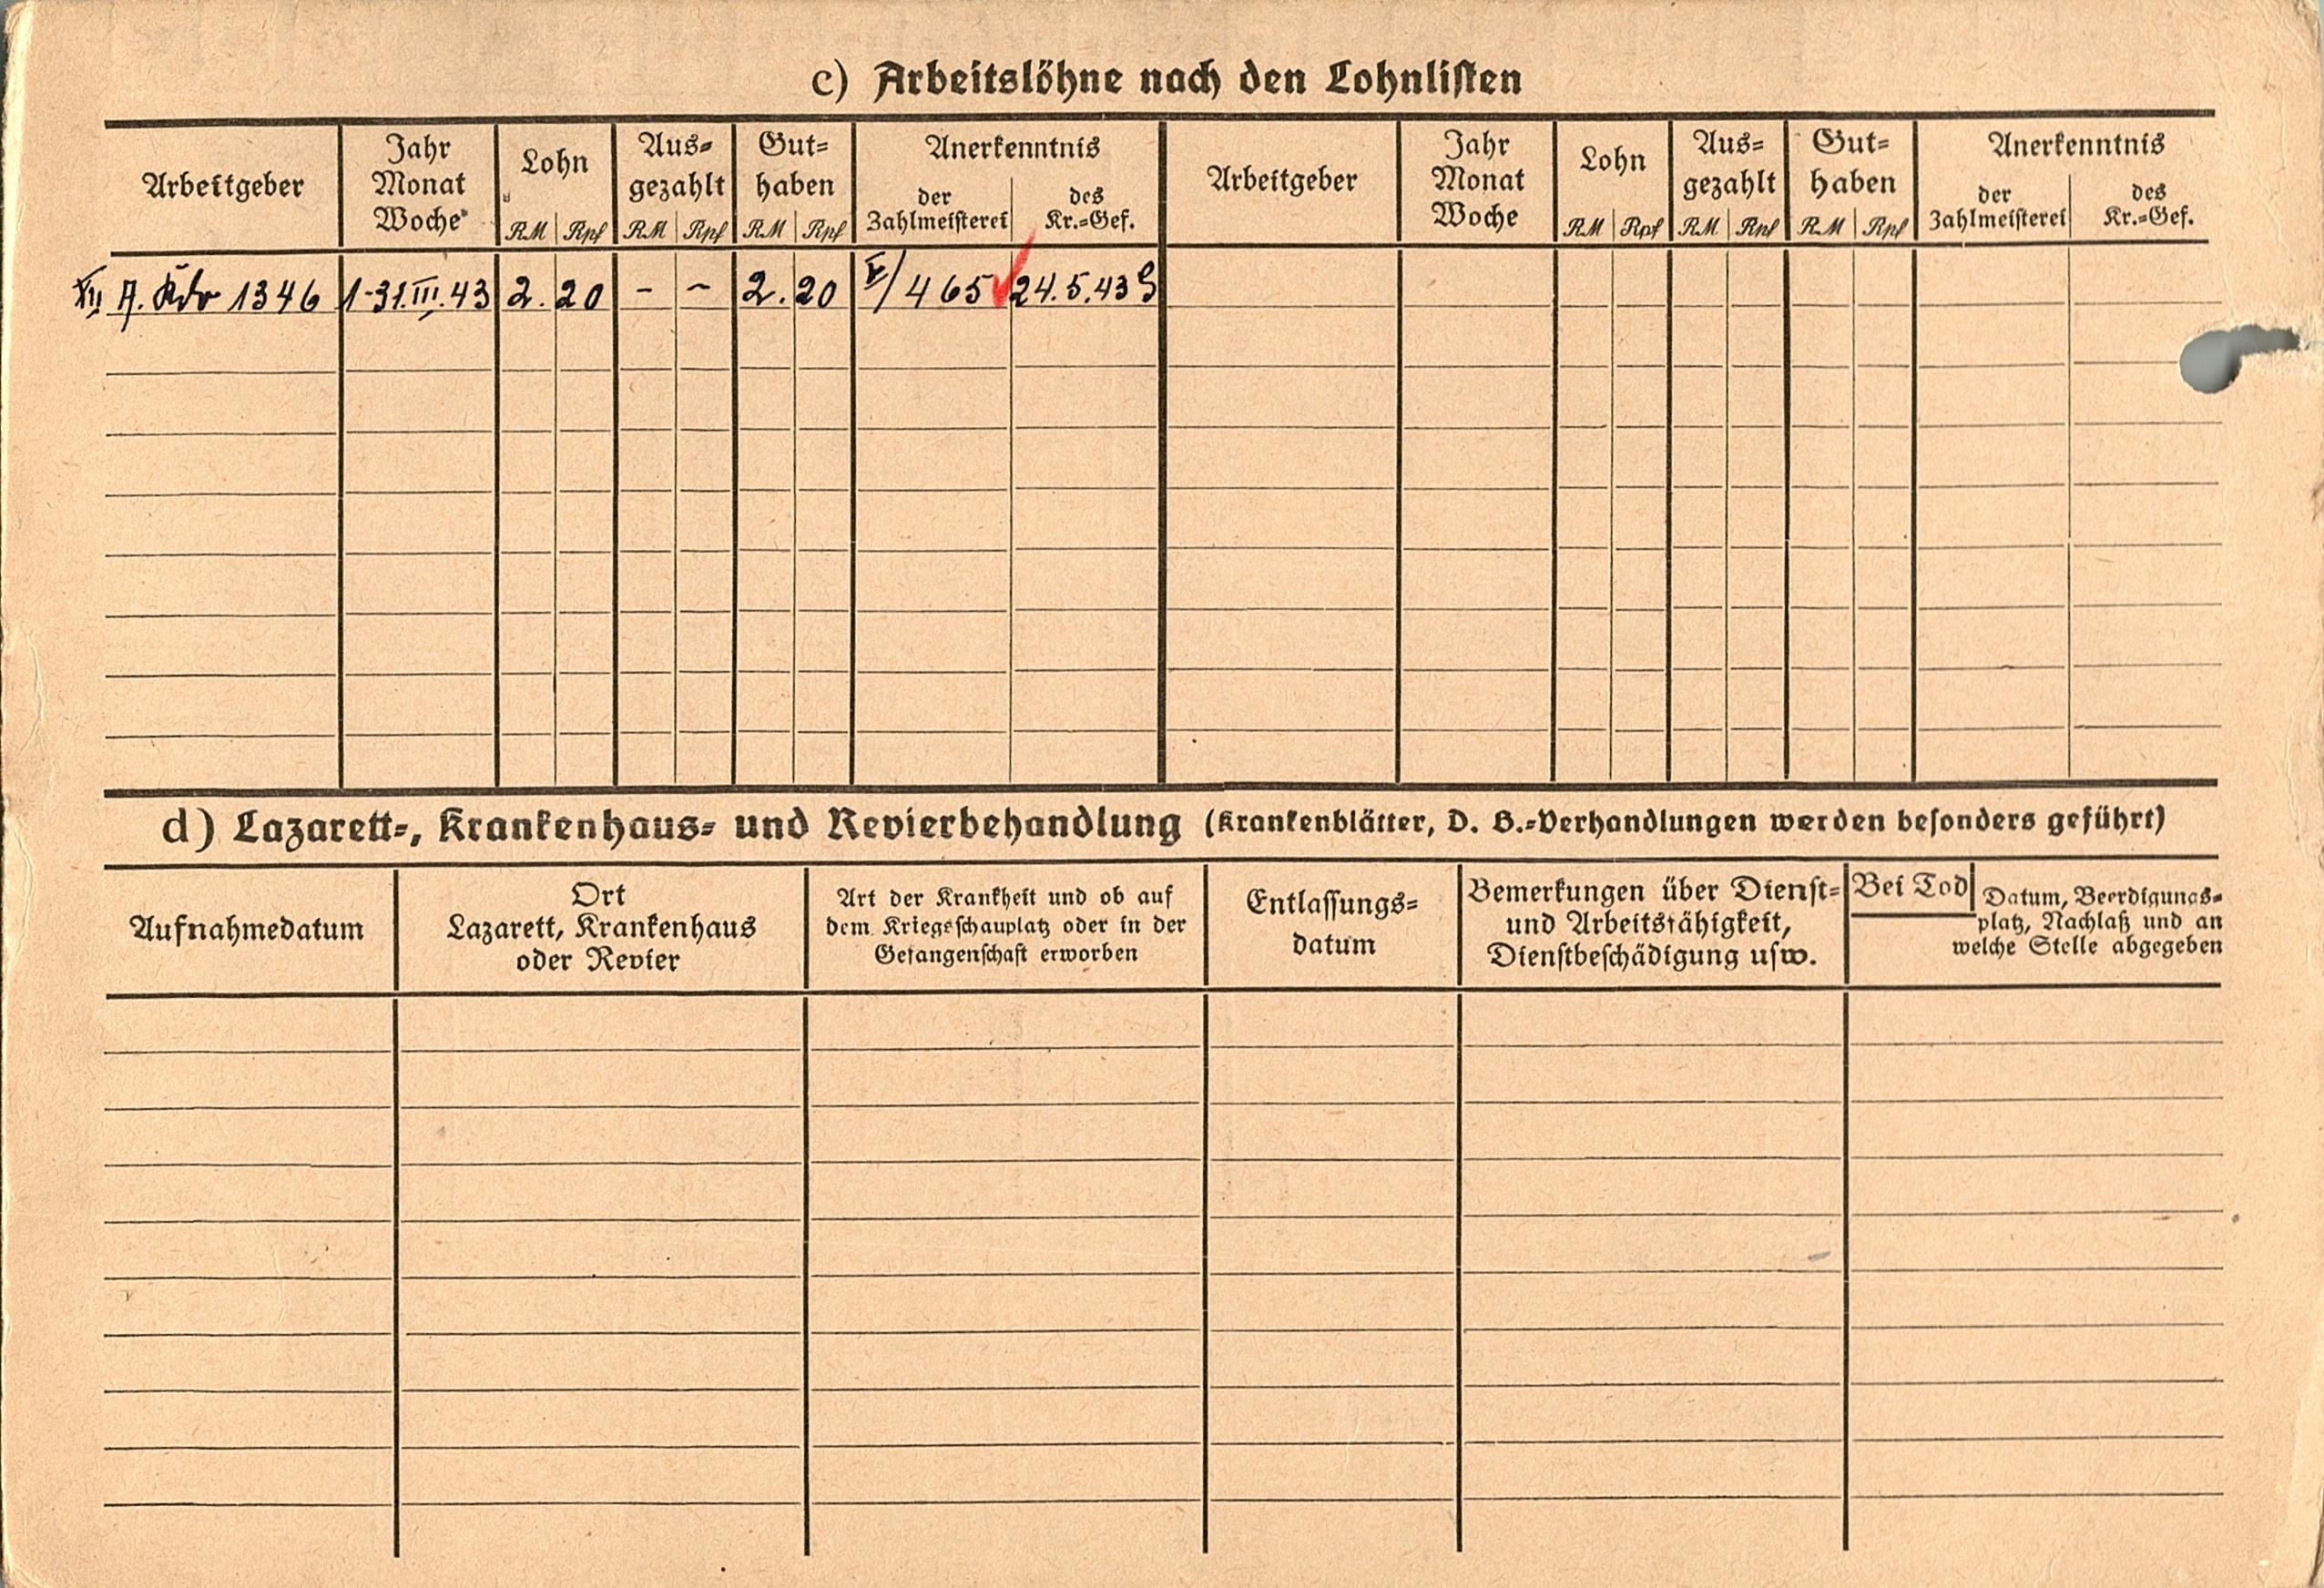 c) Arbeitslöhne nach den Lohnlisten
Arbeitgeber
Jahr
Monat
Woche
Lohn
RM Rpf
Aus-
gezahlt
RM Rpf
Gut-
haben
RM Rpf
Anerkenntnis
der
Zahlmeisterei
des
Kr.-Gef.
Arbeitgeber
Jahr
Monat
Woche
Lohn
RM Rpf
Aus-
gezahlt
RM Rpf
Gut-
haben
RM Rpf
Anerkenntnis
der
Zahlmeisterei
des
Kr.-Gef.
A. Kdo 1346 1-31.III.43 2.20 - - 2.20 /465 24.5.43
d) Lazarett-, Krankenhaus- und Revierbehandlung (Krankenblätter, D. B.-Verhandlungen werden besonders geführt)
Aufnahmedatum
Ort
Lazarett, Krankenhaus
oder Revier
Art der Krankheit und ob auf
dem Kriegsschauplatz oder in der
Gefangenschaft erworben
Entlassungs-
datum
Bemerkungen über Dienst-
und Arbeitsfähigkeit,
Dienstbeschädigung usw.
Bei Tod Datum, Beerdigungs-
platz, Nachlaß und an
welche Stelle abgegeben